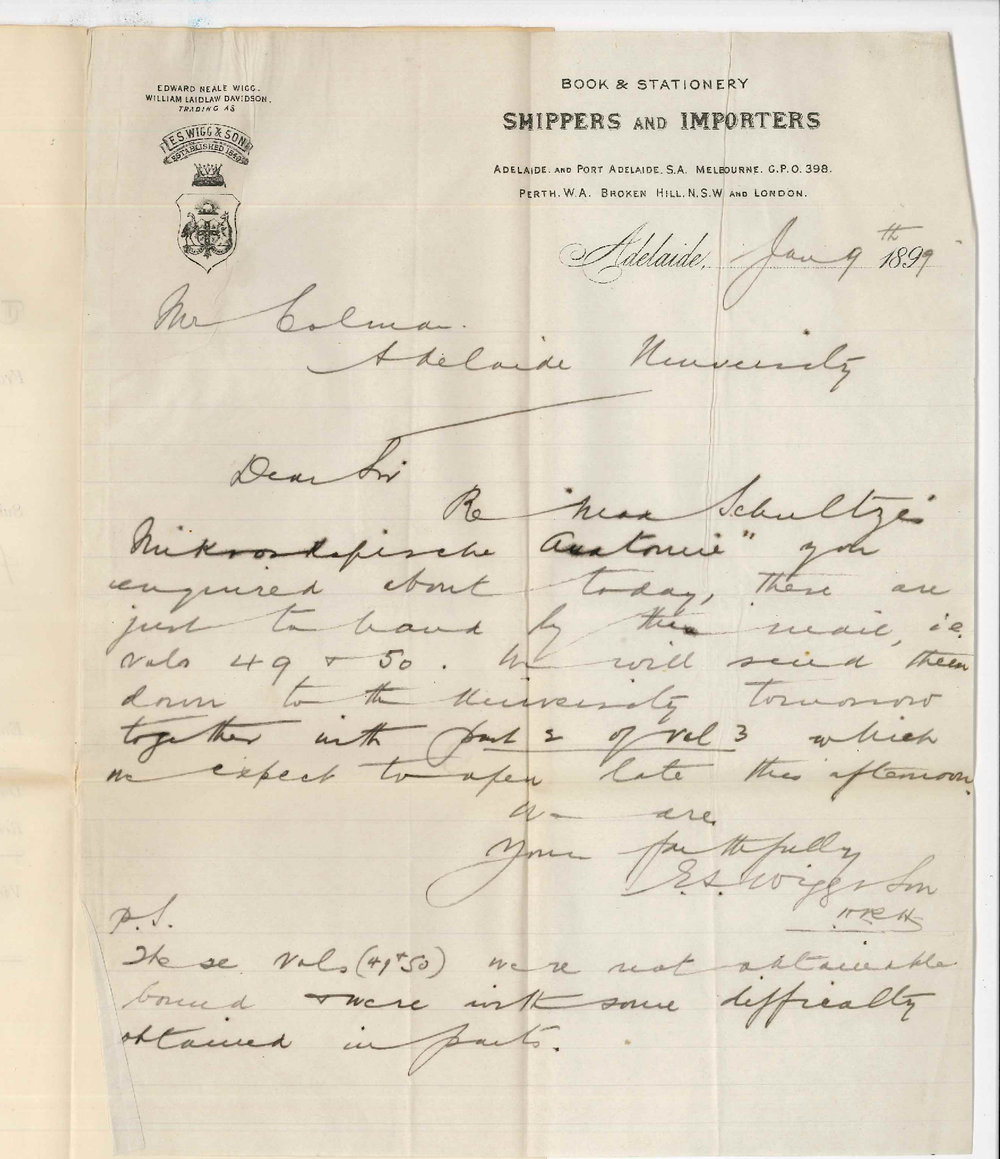 EDWARD NEALE WIGG.
WILLIAM LAIDLAW DAVIDSON.
TRADING AS
E.S. WIGG & SON
ESTABLISHED 1849
BOOK & STATIONERY
SHIPPERS AND IMPORTERS
ADELAIDE. AND PORT ADELAIDE, S.A. MELBOURNE. G.P.O. 398.
PERTH. W.A. BROKEN HILL. N.S.W AND LONDON.
Adelaide, Jan 9th 1899
Mr Colman.
Adelaide University
Dear Sir
Re "Max Schultze's
Mikroskopische Anatomie" you
enquired about today, these are
just to hand by this mail, i.e.
vols 49 + 50. We will send them
down to the University tomorrow
together with part 2 of vol 3 which
we expect to open late this afternoon.
We are
Yours faithfully
E.S. Wigg & Son
P.S.
These vols (49+50) were not obtainable
bound & were with some difficulty
obtained in parts.